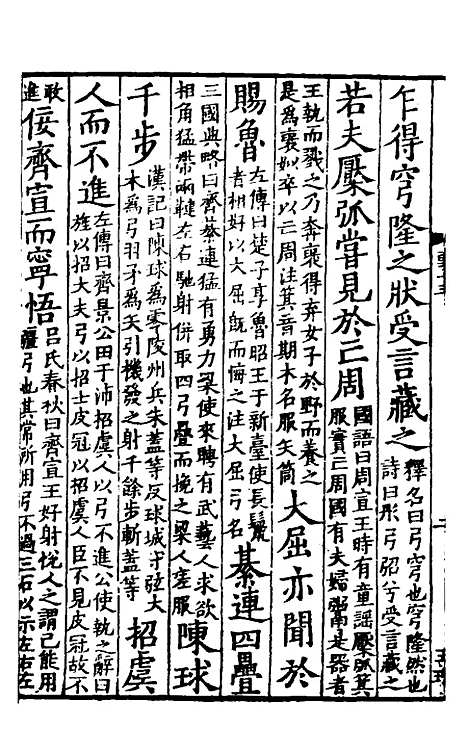 乍得穹隆之狀受言藏之
釋名曰弓穹也穹隆然也
詩曰彤弓弨兮受言藏之
若夫檿弧甞見於亡周
國語曰周宣王時有童謡檿弧箕
服實亡周國有夫婦鬻是器者
王執而戮之乃奔襃得弃女子於野而養之
是爲襃姒卒以亡周注箕音期木名服矢筒
大屈亦聞於
賜魯
左傳曰楚子享魯昭王于新臺使長鬛
者相好以大屈旣而悔之注大屈弓名
綦連四疊
三國典略曰齊綦連猛有勇力梁使來聘有武藝人求欲
相角猛帶兩鞬左右馳射併取四弓疊而挽之梁人嗟服
陳球
千步
漢記曰陳球爲零陵州兵朱蓋等反球城守弦大
木爲弓羽矛爲矢引機發之射千餘步斬蓋等
招虞
人而不進
左傳曰齊景公田于沛招虞人以弓不進公使執之辭曰
旌以招大夫弓以招士皮冠以招虞人臣不見皮冠故不
敢
進
佞齊宣而寧悟
呂氏春秋曰齊宣王好射悅人之謂己能用
疆弓也其常所用弓不過三石以示左右左